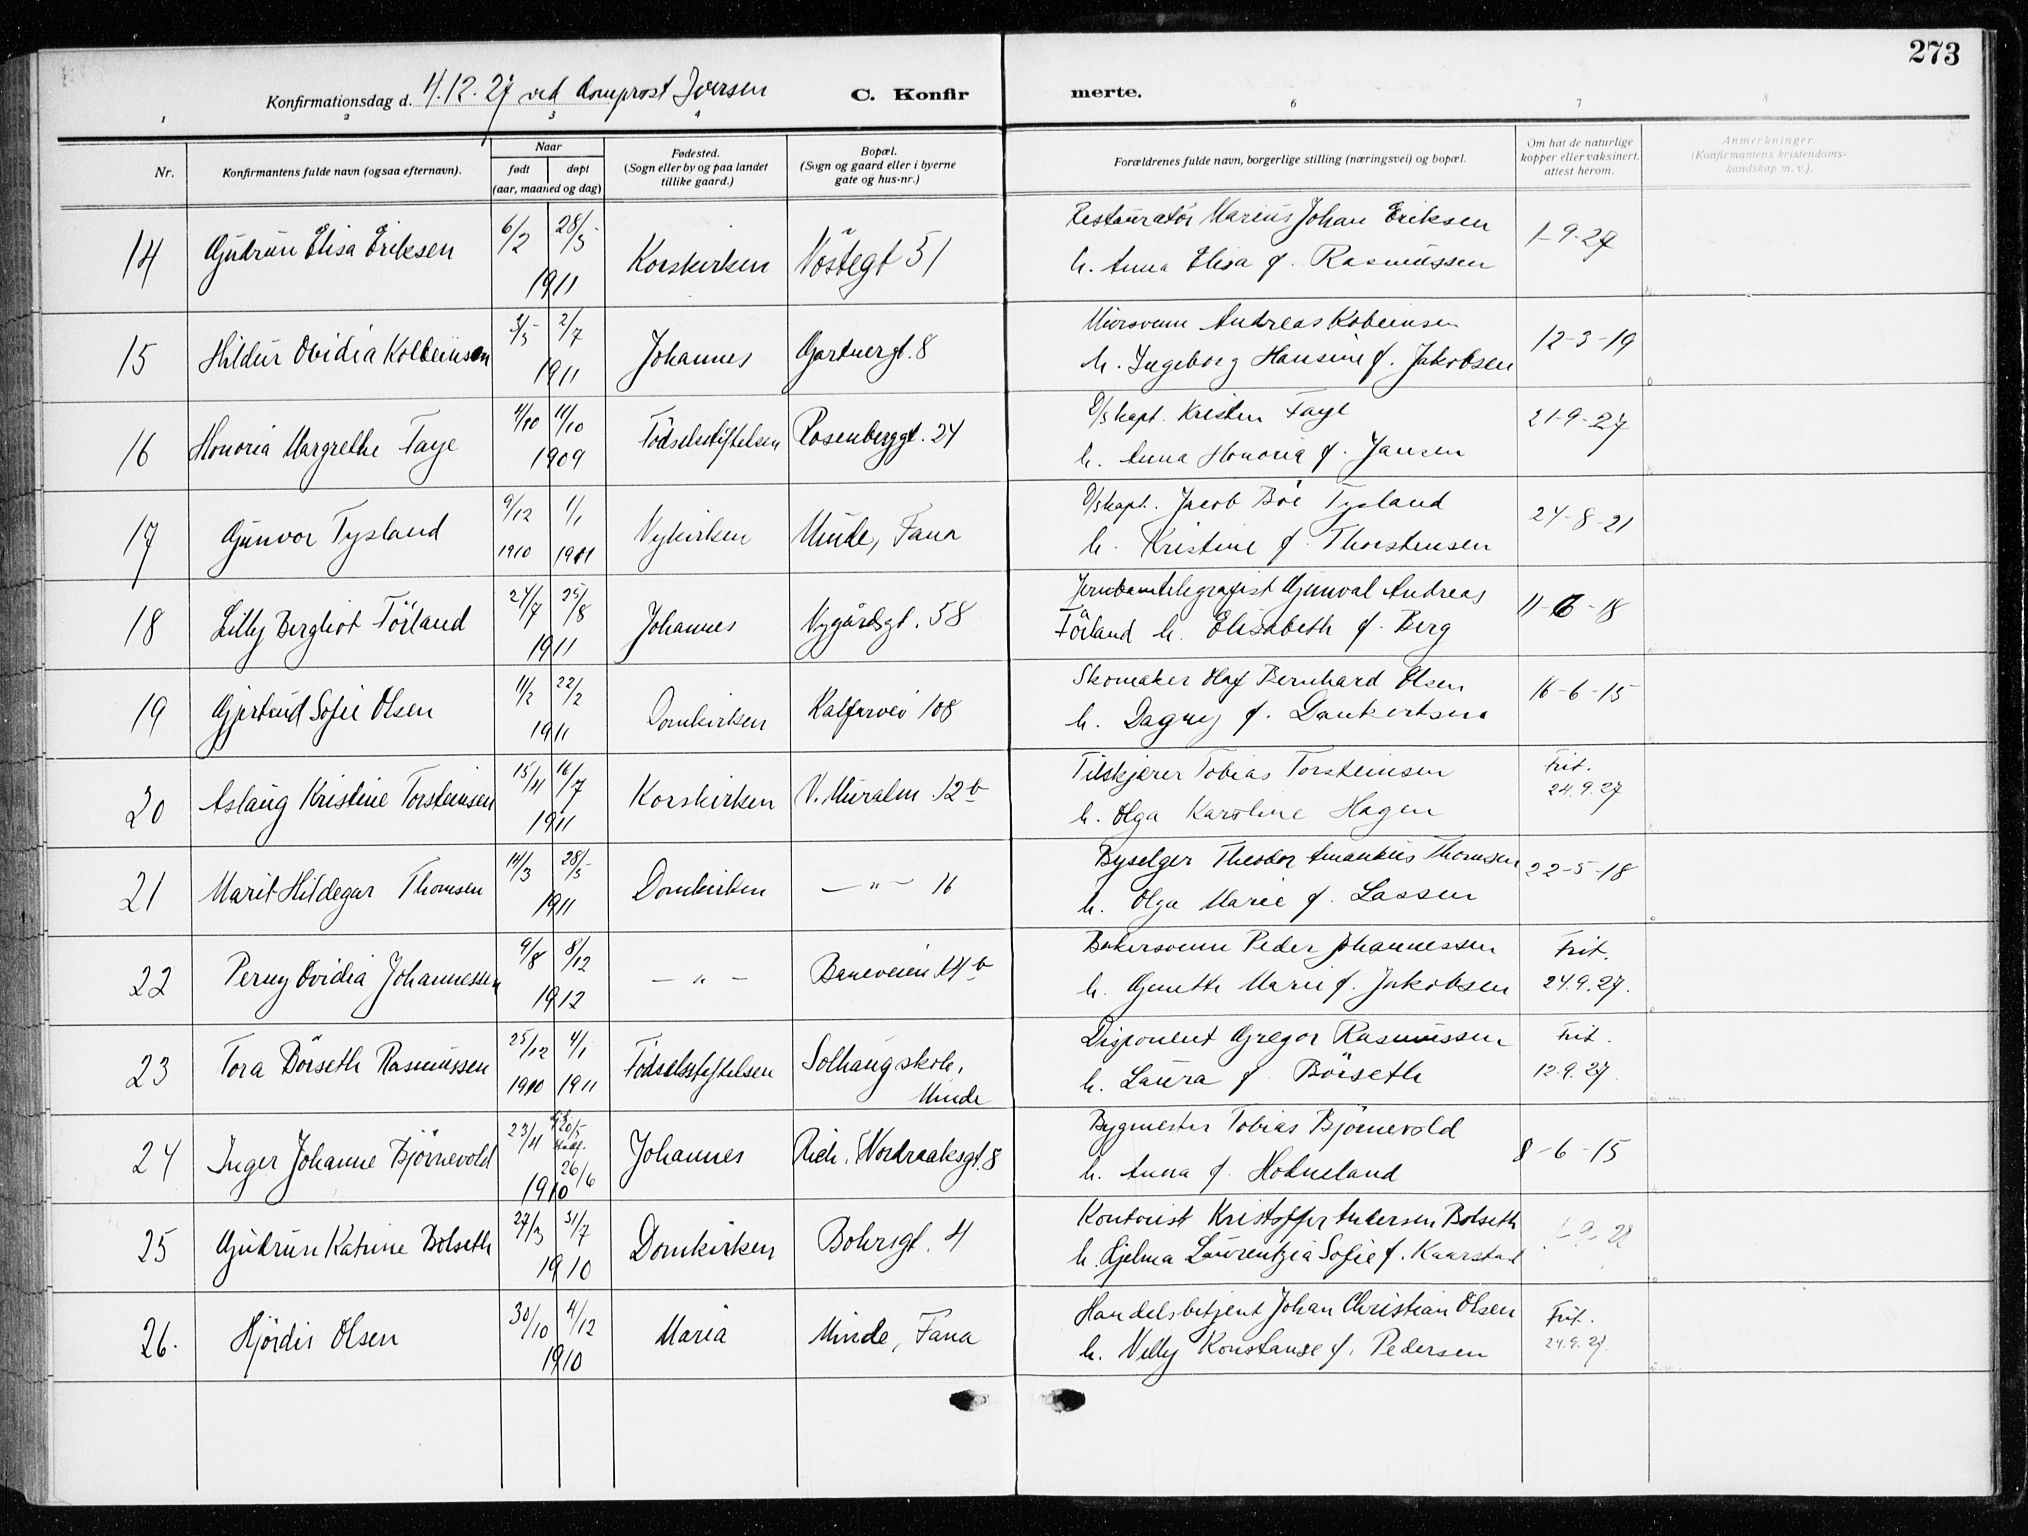 273
Konfirmationsdag d. 4.12.27 ved domprost Iversen C. Konfirmerte.
1 2 3 4 6 7 8
Nr. Konfirmantens fulde navn (ogsaa efternavn). Naar født døpt (aar, maaned og dag) Fødested. (Sogn eller by og paa landet tillike gaard.) Bopæl. (Sogn og gaard eller i byerne gate og hus-nr.) Forældrenes fulde navn, borgerlige stilling (næringsvei) og bopæl. Om hat de naturlige kopper eller vaksinert, attest herom. Anmerkninger. (Konfirmantens kristendoms-kundskap m. v.).
14 Gudrun Elisa Eriksen 6/2 28/5 1911 Korskirken Nöstegt 51 Restauratör Marius Johan Eriksen 1-9-27
h. Anna Elisa f. Rasmussen
15 Hildur Ovidia Kolbeinsen 3/5 2/7 1911 Johannes Gartnergt. 8 Mursvenn Andreas Kobeinsen 12-3-19
h. Ingeborg Hansine f. Jakobsen
16 Honoria Margrethe Faye 4/10 11/10 1909 Födselsstiftelsen Rosenberggt. 24 D/skapt. Kristen Faye 21-9-27
h. Anna Honoria f. Jansen
17 Gunvor Tysland 9/12 1910 1/1 1911 Nykirken Minde, Fana D/skapt. Jacob Böe Tysland 24-8-21
h. Kristine f. Thorstensen
18 Lilly Bergliot Förland 24/7 25/8 1911 Johannes Nygårdsgt. 58 Jernbanetelegrafist Gunval Andreas 11-6-18
Förland h. Elisabeth f. Berg
19 Gjertrud Sofie Olsen 11/2 22/2 1911 Domkirken Kalfarvei 108 Skomaker Olaf Bernhard Olsen 16-6-15
h. Dagny f. Dankertsen
20 Aslaug Kristine Torsteinsen 15/4 16/7 1911 Korskirken V. Muralm. 12b Tilskjærer Tobias Torsteinsen Frit. 24.9.27
h. Olga Karoline Hagen
21 Marit Hildegar Thomsen 14/3 28/5 1911 Domkirken — " — 16 Byselger Theodor Amandus Thomsen 22-5-18
h. Olga Marie f. Lassen
22 Perny Ovidia Johannessen 9/8 8/12 1912 — " — Baneveien 14b Bakersvenn Peder Johannessen Frit. 24.9.27.
h. Ginette Marie f. Jakobsen
23 Tora Börseth Rasmussen 25/12 1910 4/1 1911 Födselsstiftelsen Solhaug skole, Minde Disponent Gregor Rasmussen Frit. 12.9.27
h. Laura f. Börseth
24 Inger Johanne Björnevold 23/4 20/5 26/6 1910 Johannes Rich. Nordraaksgt. 8 Bygmester Tobias Björnevold 8-6-15
h. Anna f. Hodneland
25 Gudrun Katrine Bolseth 27/3 31/7 1910 Domkirken Bohrsgt. 4 Kontorist Kristoffer Andersen Bolseth
h. Hjelma Laurentzia Sofie f. Kaarstad
26. Hjördis Olsen 30/10 4/12 1910 Maria Minde, Fana Handelsbetjent Johan Christian Olsen Frit. 24.9.27.
h. Nelly Konstanse f. Pedersen